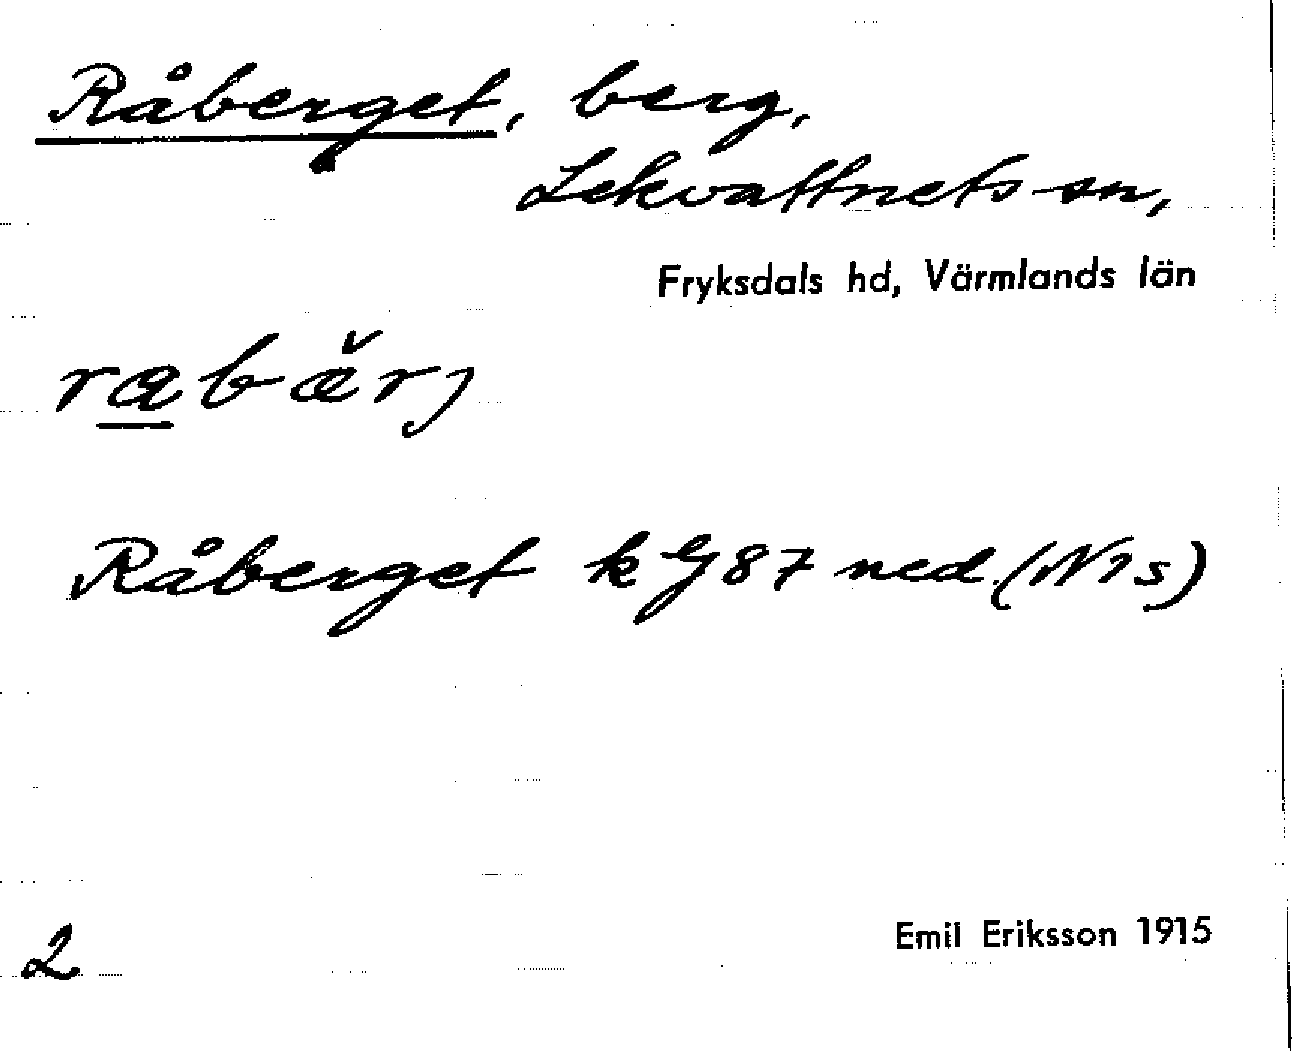 Råberget, berg,
Lekvattnets sn,
Fryksdals hd, Värmlands län
rabärj
Råberget k G 87 ned (N1s)
Emil Eriksson 1915
2